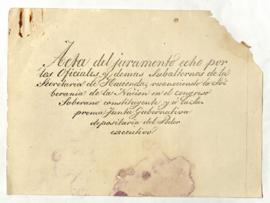 Acta del juramento echo por
los Oficiales y demas Subalternos de la
Secretaria de Hacienda, reconociendo la So-
berania de la Nacion en el congreso
Soberano constituyente y à la Su-
prema Junta Gubernativa
depositaria del Poder
executivo